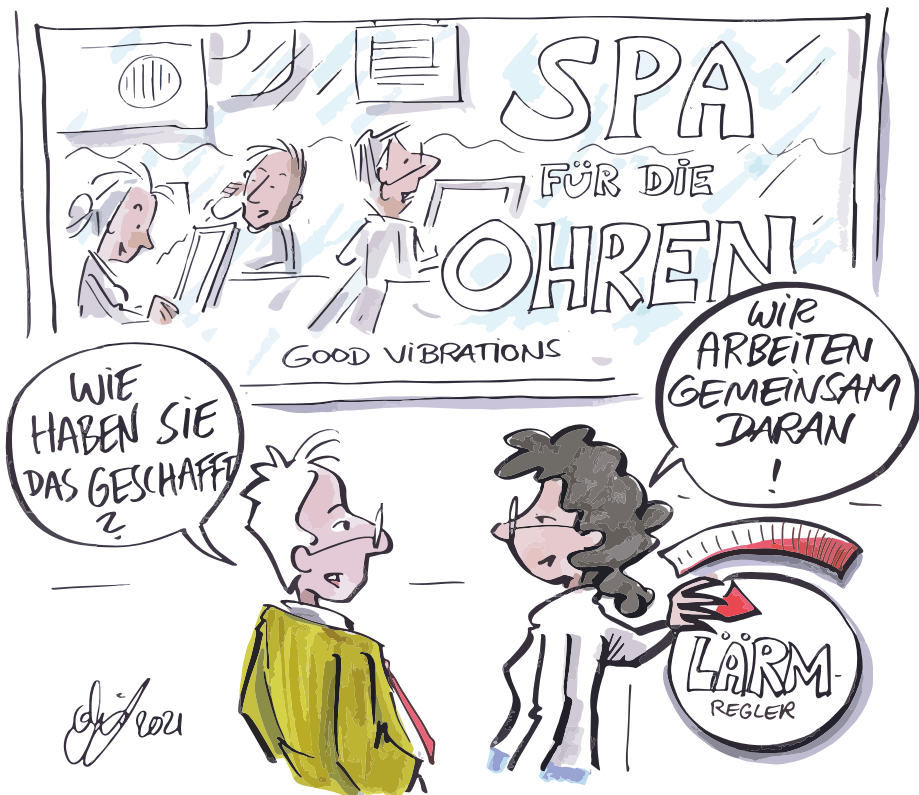 SPA
FÜR DIE
OHREN
GOOD VIBRATIONS
WIE
HABEN SIE
DAS GESCHAFFT
?
WIR
ARBEITEN
GEMEINSAM
DARAN
!
LÄRM-
REGLER
2021